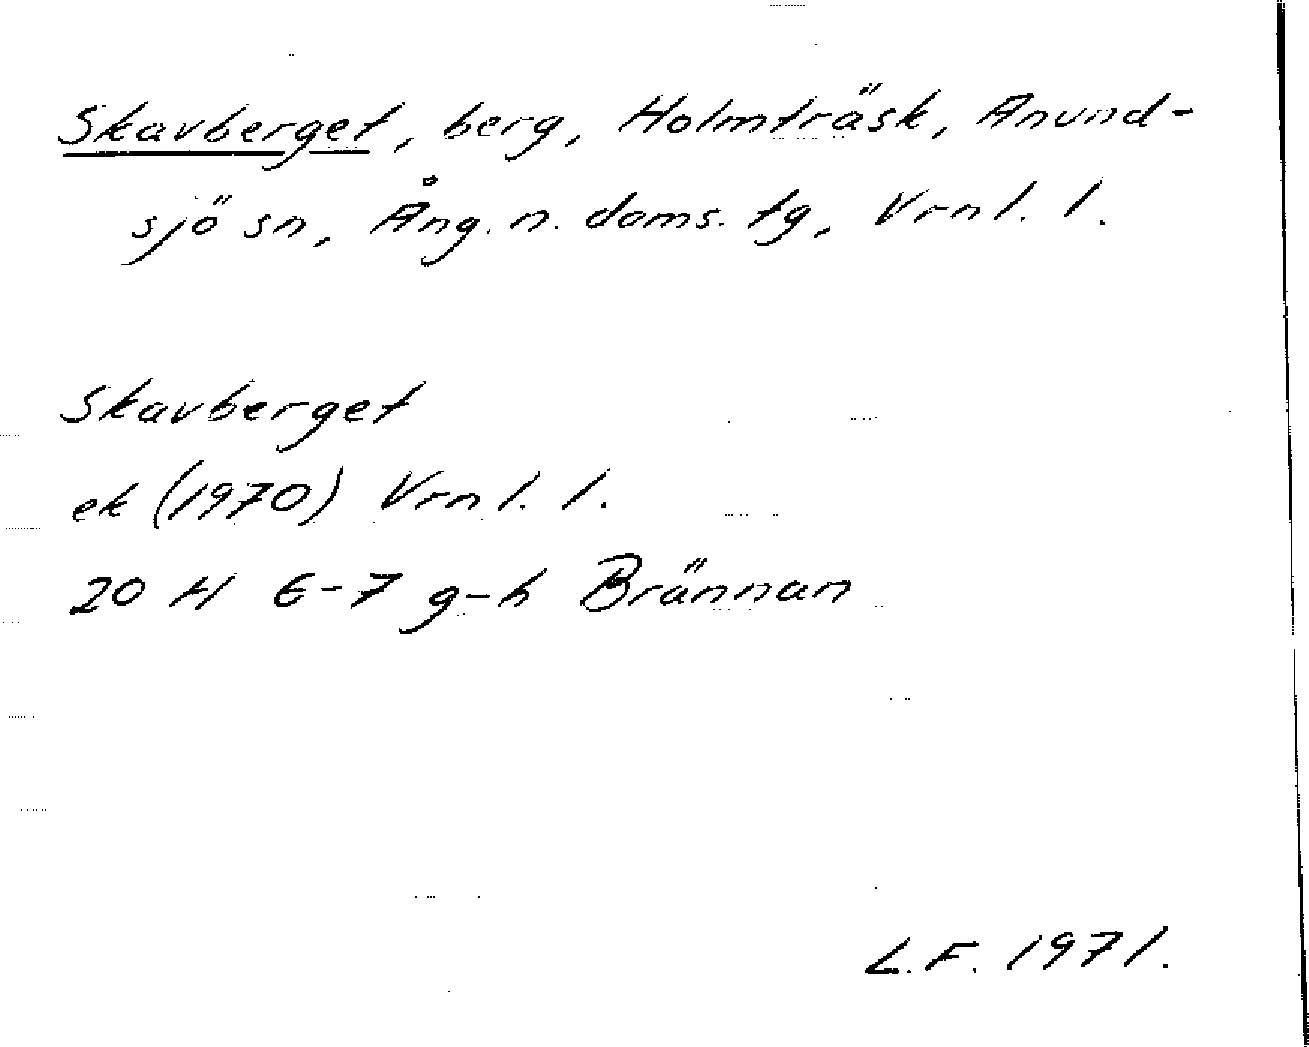 Skavberget, berg, Holmträsk, Anund-
sjö sn, Ång. n. doms. tg, Vrnl. l.
Skavberget
ek (1970) Vrnl. l.
20 H 6-7 g-h Brännan
L.F. 1971.